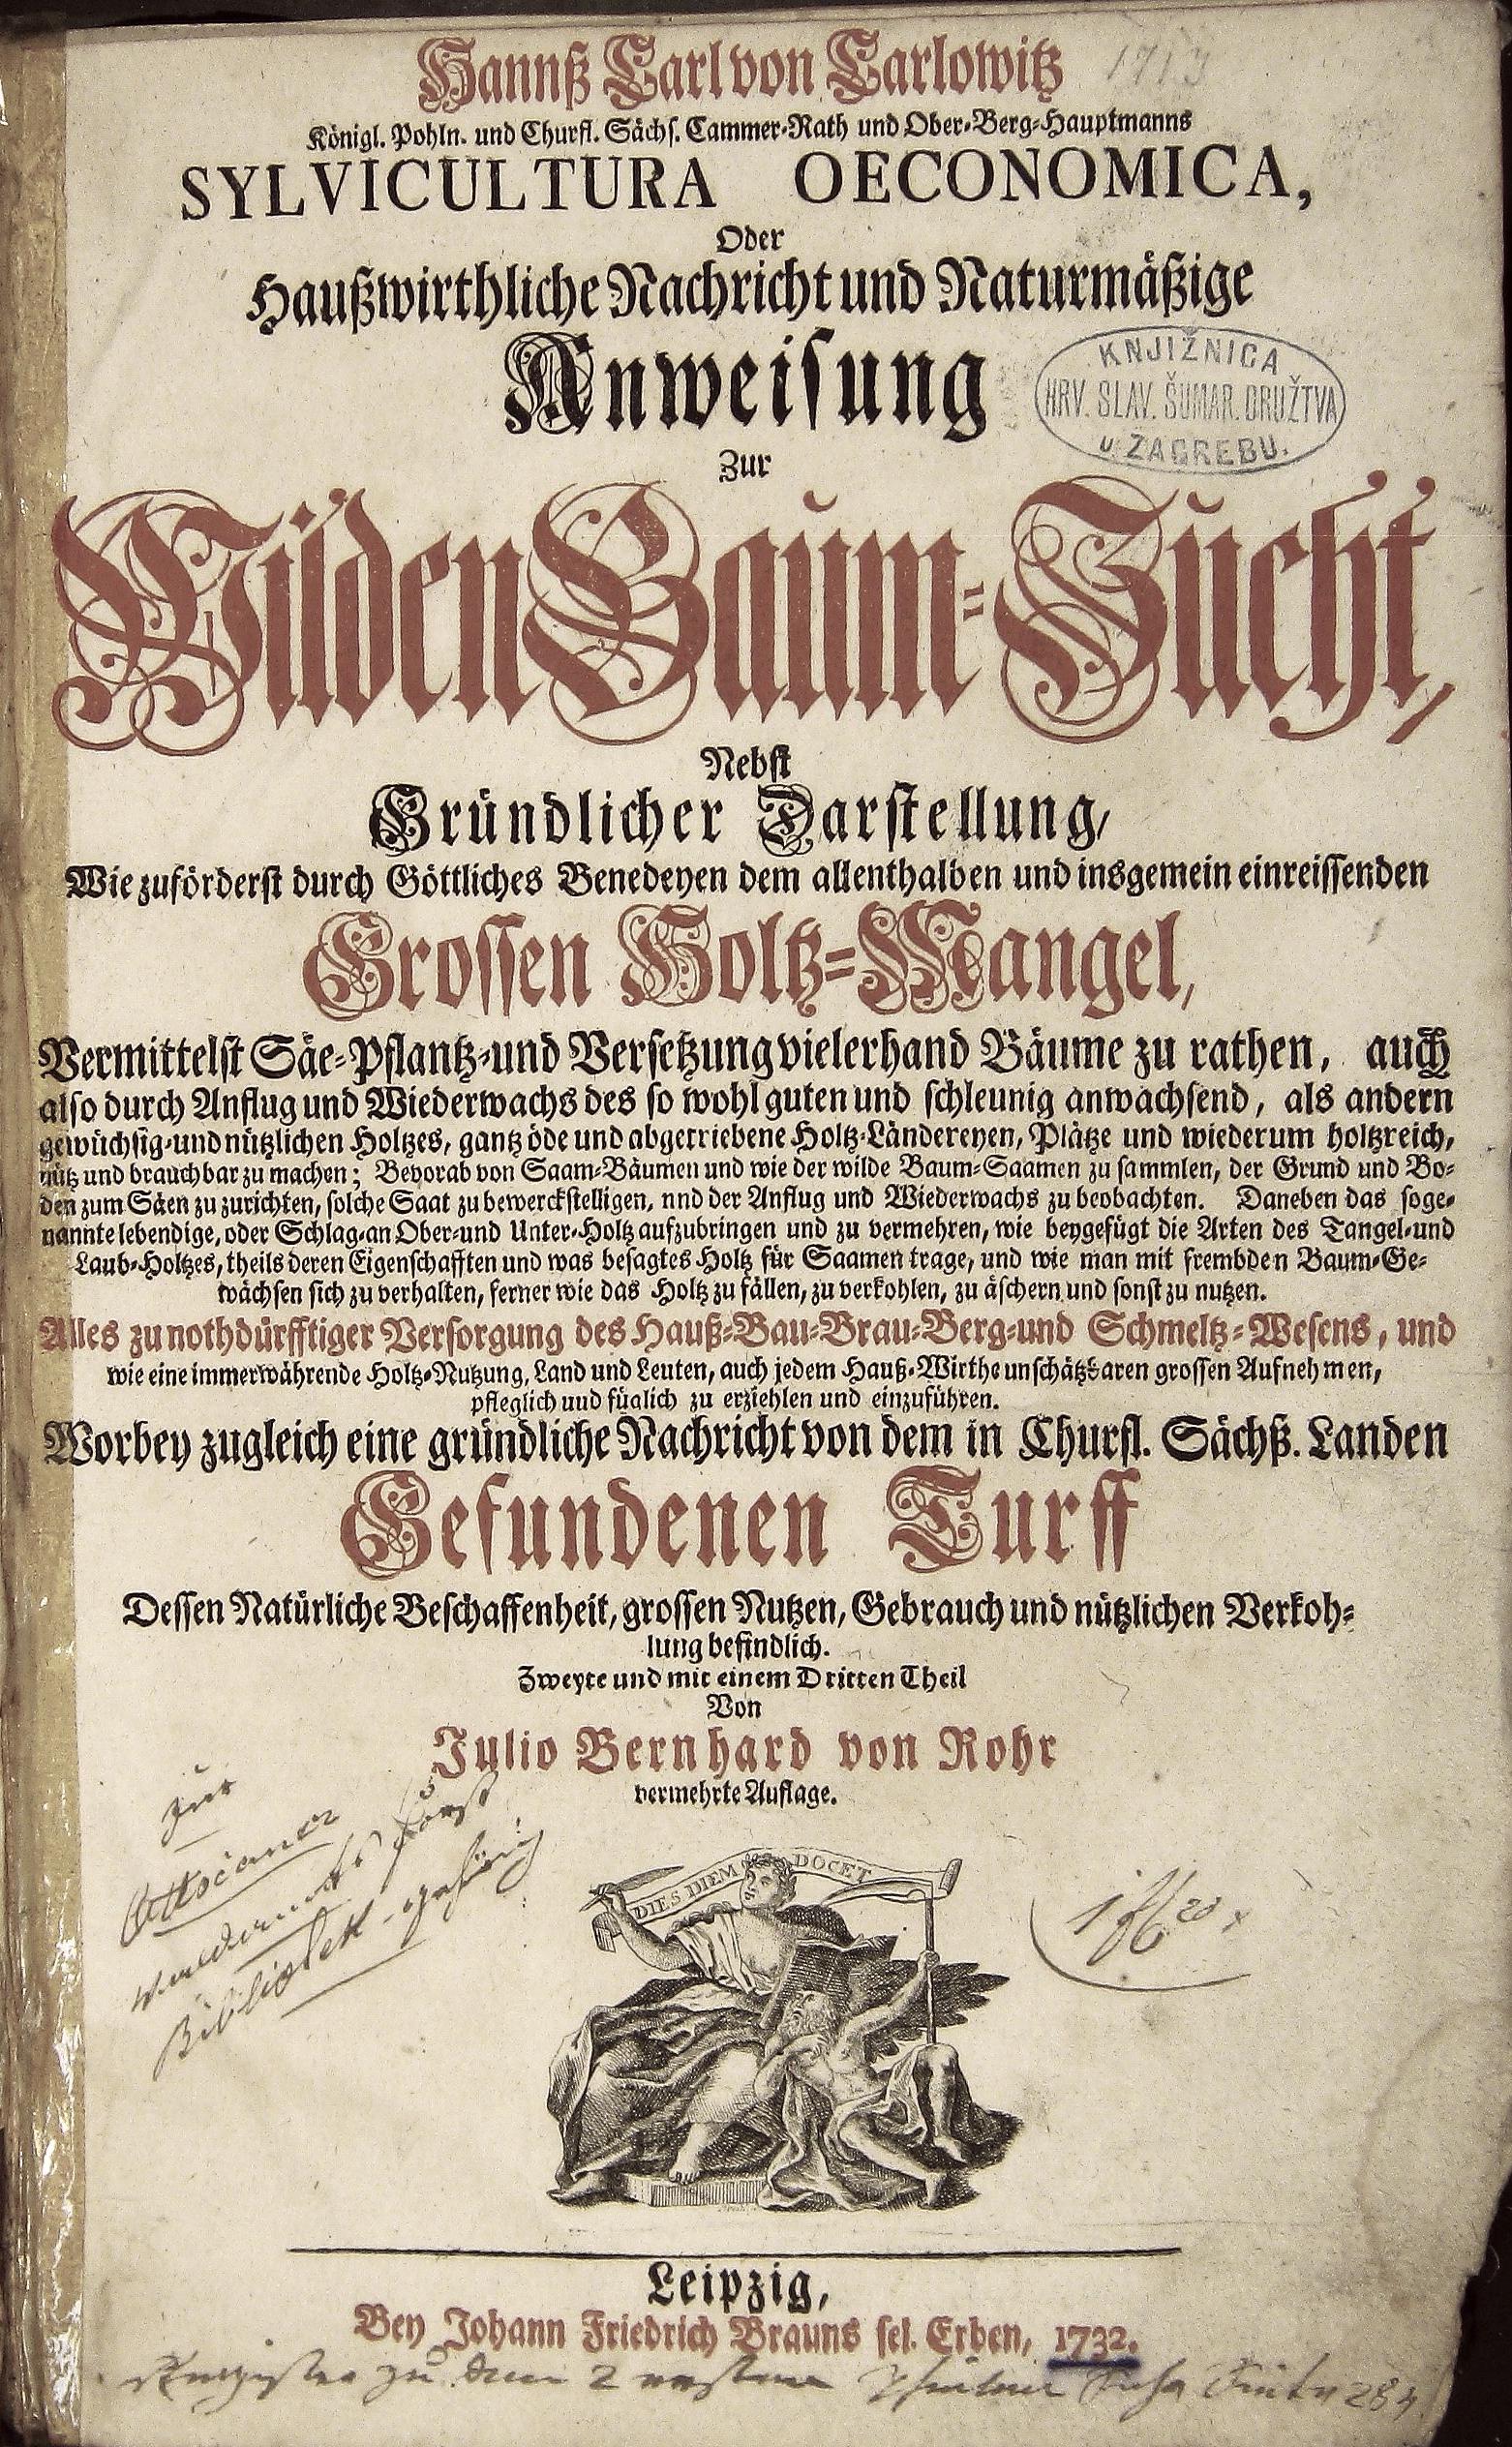 Hannß Carl von Carlowitz
1713
Königl. Pohln. und Churfl. Sächs. Cammer-Rath und Ober-Berg-Hauptmanns
SYLVICULTURA OECONOMICA,
Oder
Haußwirthliche Nachricht und Naturmäßige
Anweisung
KNJIŽNICA
HRV. SLAV. ŠUMAR. DRUŽTVA
U ZAGREBU.
Zur
Wilden Baum-Zucht,
Nebst
Gründlicher Darstellung,
Wie zuförderst durch Göttliches Benedeyen dem allenthalben und insgemein einreissenden
Grossen Holtz-Mangel,
Vermittelst Säe-Pflantz-und Versetzung vielerhand Bäume zu rathen, auch
also durch Anflug und Wiederwachs des so wohl guten und schleunig anwachsend, als andern
gewüchsig-und nützlichen Holtzes, gantz öde und abgetriebene Holtz-Ländereyen, Plätze und wiederum holtzreich,
nütz und brauchbar zu machen; Bevorab von Saam-Bäumen und wie der wilde Baum-Saamen zu sammlen, der Grund und Bo-
den zum Säen zu zurichten, solche Saat zu bewerckstelligen, nnd der Anflug und Wiederwachs zu beobachten. Daneben das soge-
nannte lebendige, oder Schlag-an Ober-und Unter-Holtz aufzubringen und zu vermehren, wie beygefügt die Arten des Tangel-und
Laub-Holtzes, theils deren Eigenschafften und was besagtes Holtz für Saamen trage, und wie man mit frembden Baum-Ge-
wächsen sich zu verhalten, ferner wie das Holtz zu fällen, zu verkohlen, zu äschern und sonst zu nutzen.
Alles zu nothdürfftiger Versorgung des Hauß-Bau-Brau-Berg-und Schmeltz-Wesens, und
wie eine immerwährende Holtz-Nutzung, Land und Leuten, auch jedem Hauß-Wirthe unschätzbaren grossen Aufnehmen,
pfleglich und füglich zu erziehlen und einzuführen.
Worbey zugleich eine gründliche Nachricht von dem in Churfl. Sächß. Landen
Gefundenen Turff
Dessen Natürliche Beschaffenheit, grossen Nutzen, Gebrauch und nützlichen Verkoh-
lung befindlich.
Zweyte und mit einem Dritten Theil
Von
Julio Bernhard von Rohr
vermehrte Auflage.
zur
Ottočaner
Forst
Bibliothek gehörig
DIES DIEM DOCET
Leipzig,
Bey Johann Friedrich Brauns sel. Erben, 1732.
Register zu denen 2 ersten Theilen Siehe Seite 284